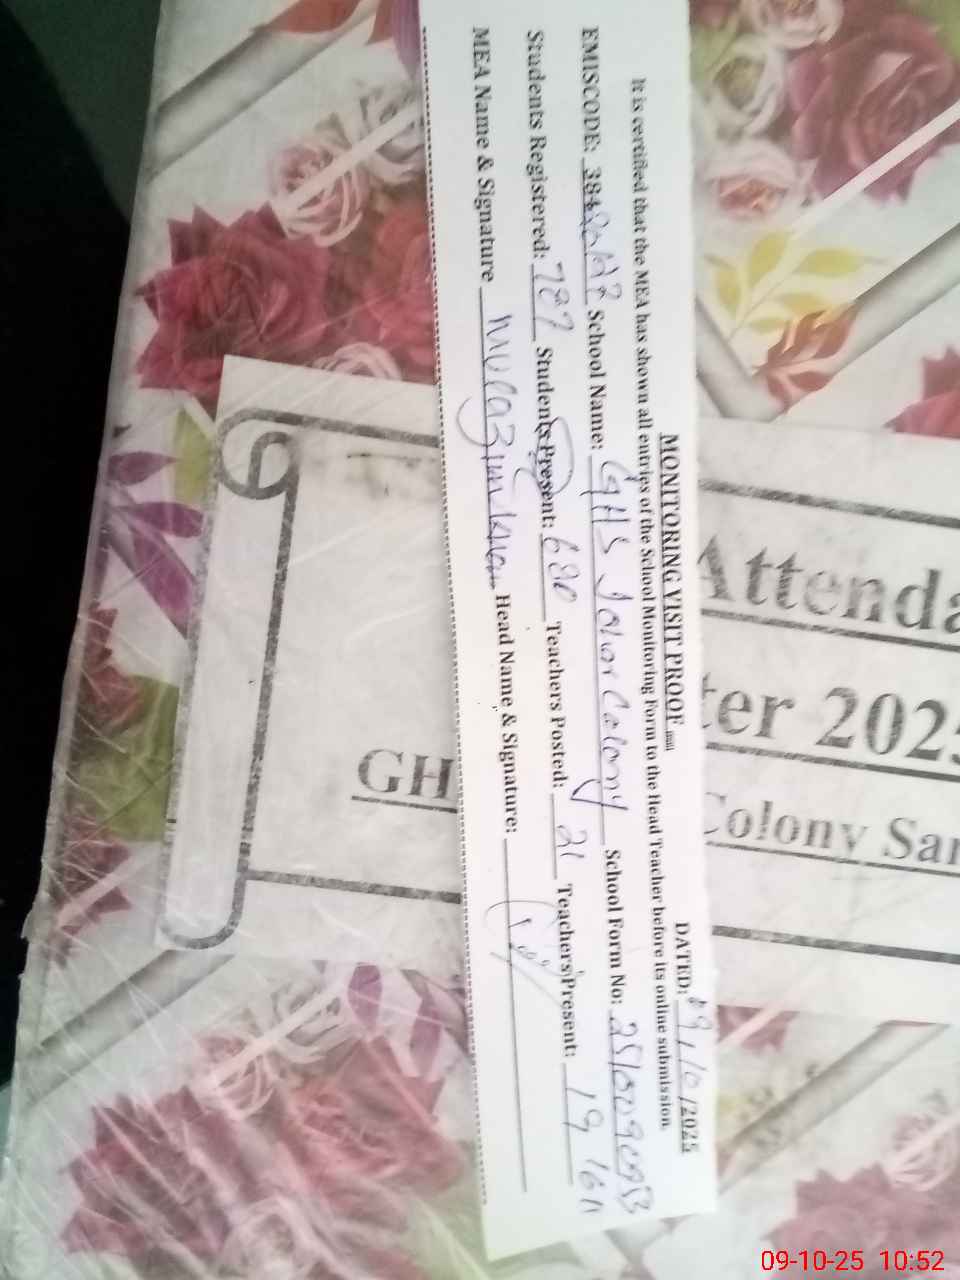 MONITORING VISIT PROOF
DATED: 09/10/2025
It is certified that the MEA has shown all entries of the School Monitoring Form to the Head Teacher before its online submission.
EMISCODE: School Name: GHS Johar Colony School Form No:
Students Registered: 787 Students Present: 680 Teachers Posted: 21 Teachers Present: 19
MEA Name & Signature Head Name & Signature:
Attenda
ter 2025
GH Colony Sar
09-10-25 10:52